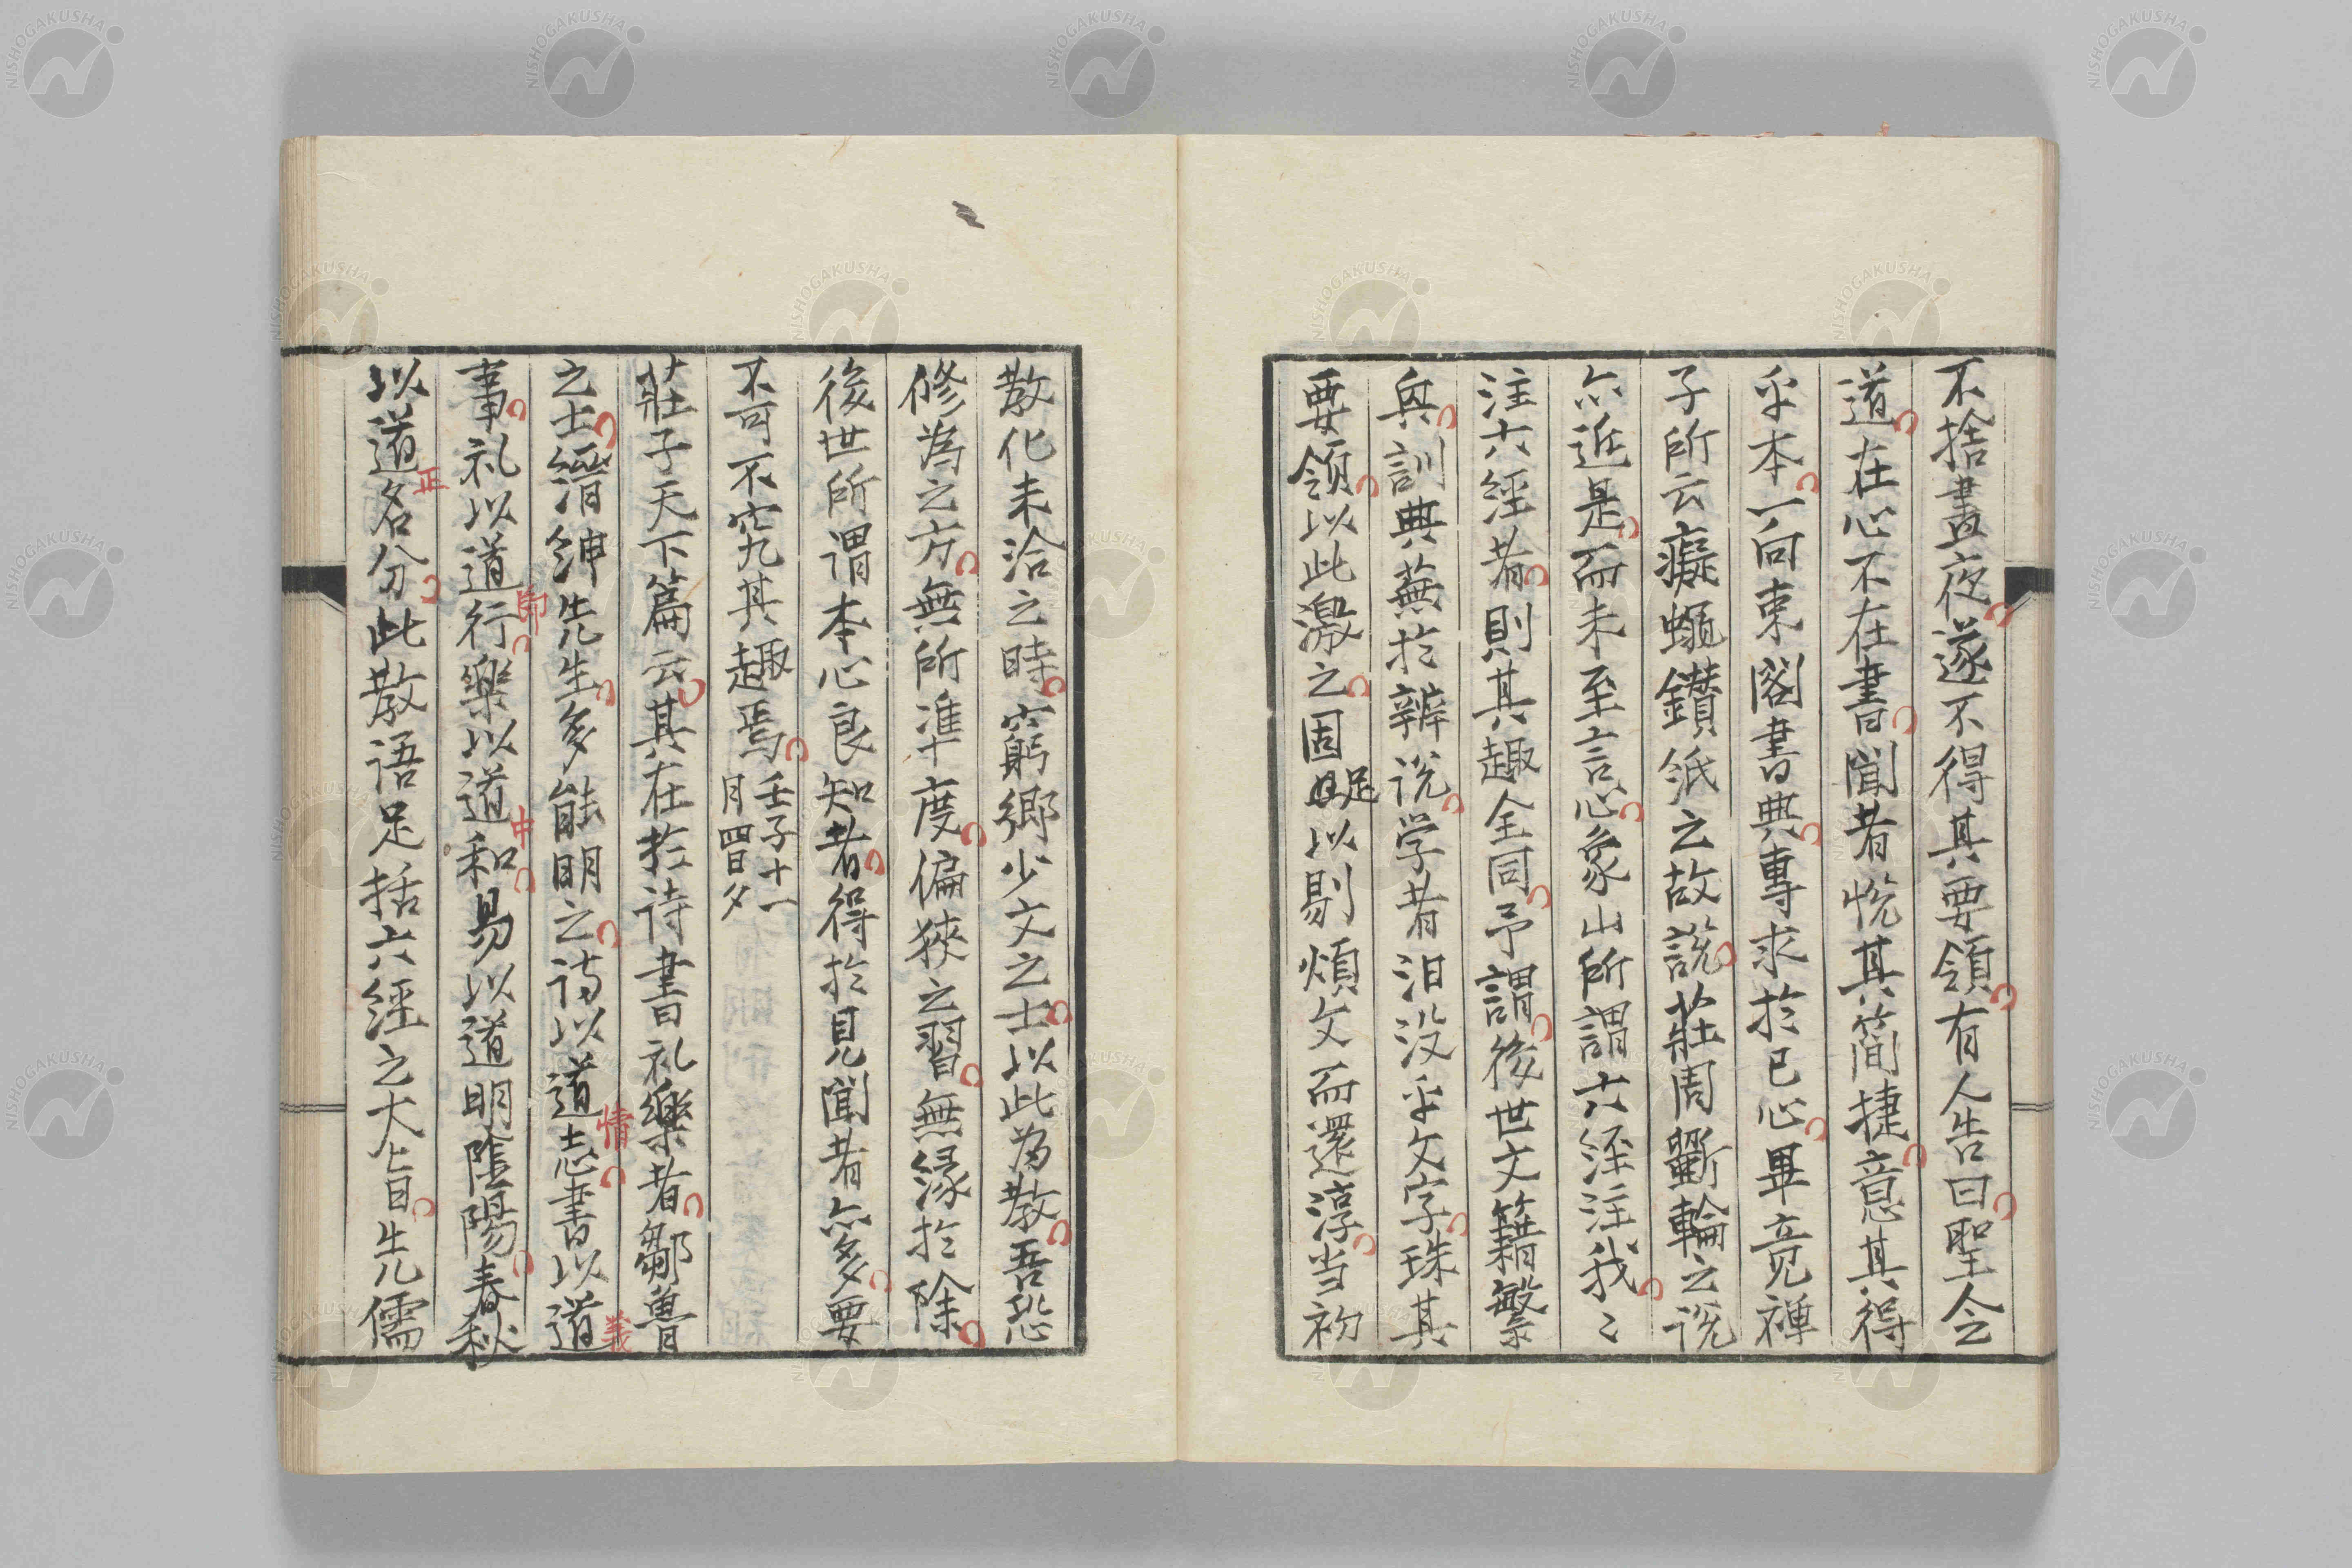 不捨晝夜遂不得其要領有人告曰聖令
道在心不在書聞者悅其簡捷意其得
乎本一向束閣書典專求於己心畢竟禅
子所云癡蠅鑚紙之故說莊周斷輪之説
亦近是而未至言心象山所謂六経注我〻
注六經者則其趣全同予謂後世文籍繁
與訓典蕪於辨说学者汨没乎文字珠其
要領以此激之固足以剔煩文而還淳当初
教化未洽之時窮郷少文之士以此為教吾恐
修為之方無所準度偏狹之習無縁於除
後世所謂本心良知者得於見聞者亦多要
不可不究其趣焉壬子十一
月四日夕
莊子天下篇云其在於诗書礼樂者鄒魯
之士縉紳先生多能明之诗以道志書以道
事礼以道行樂以道和易以道明陰陽春秋
以道名分此教语足括六經之大旨先儒
情
義
節
中
正
NISHOGAKUSHA